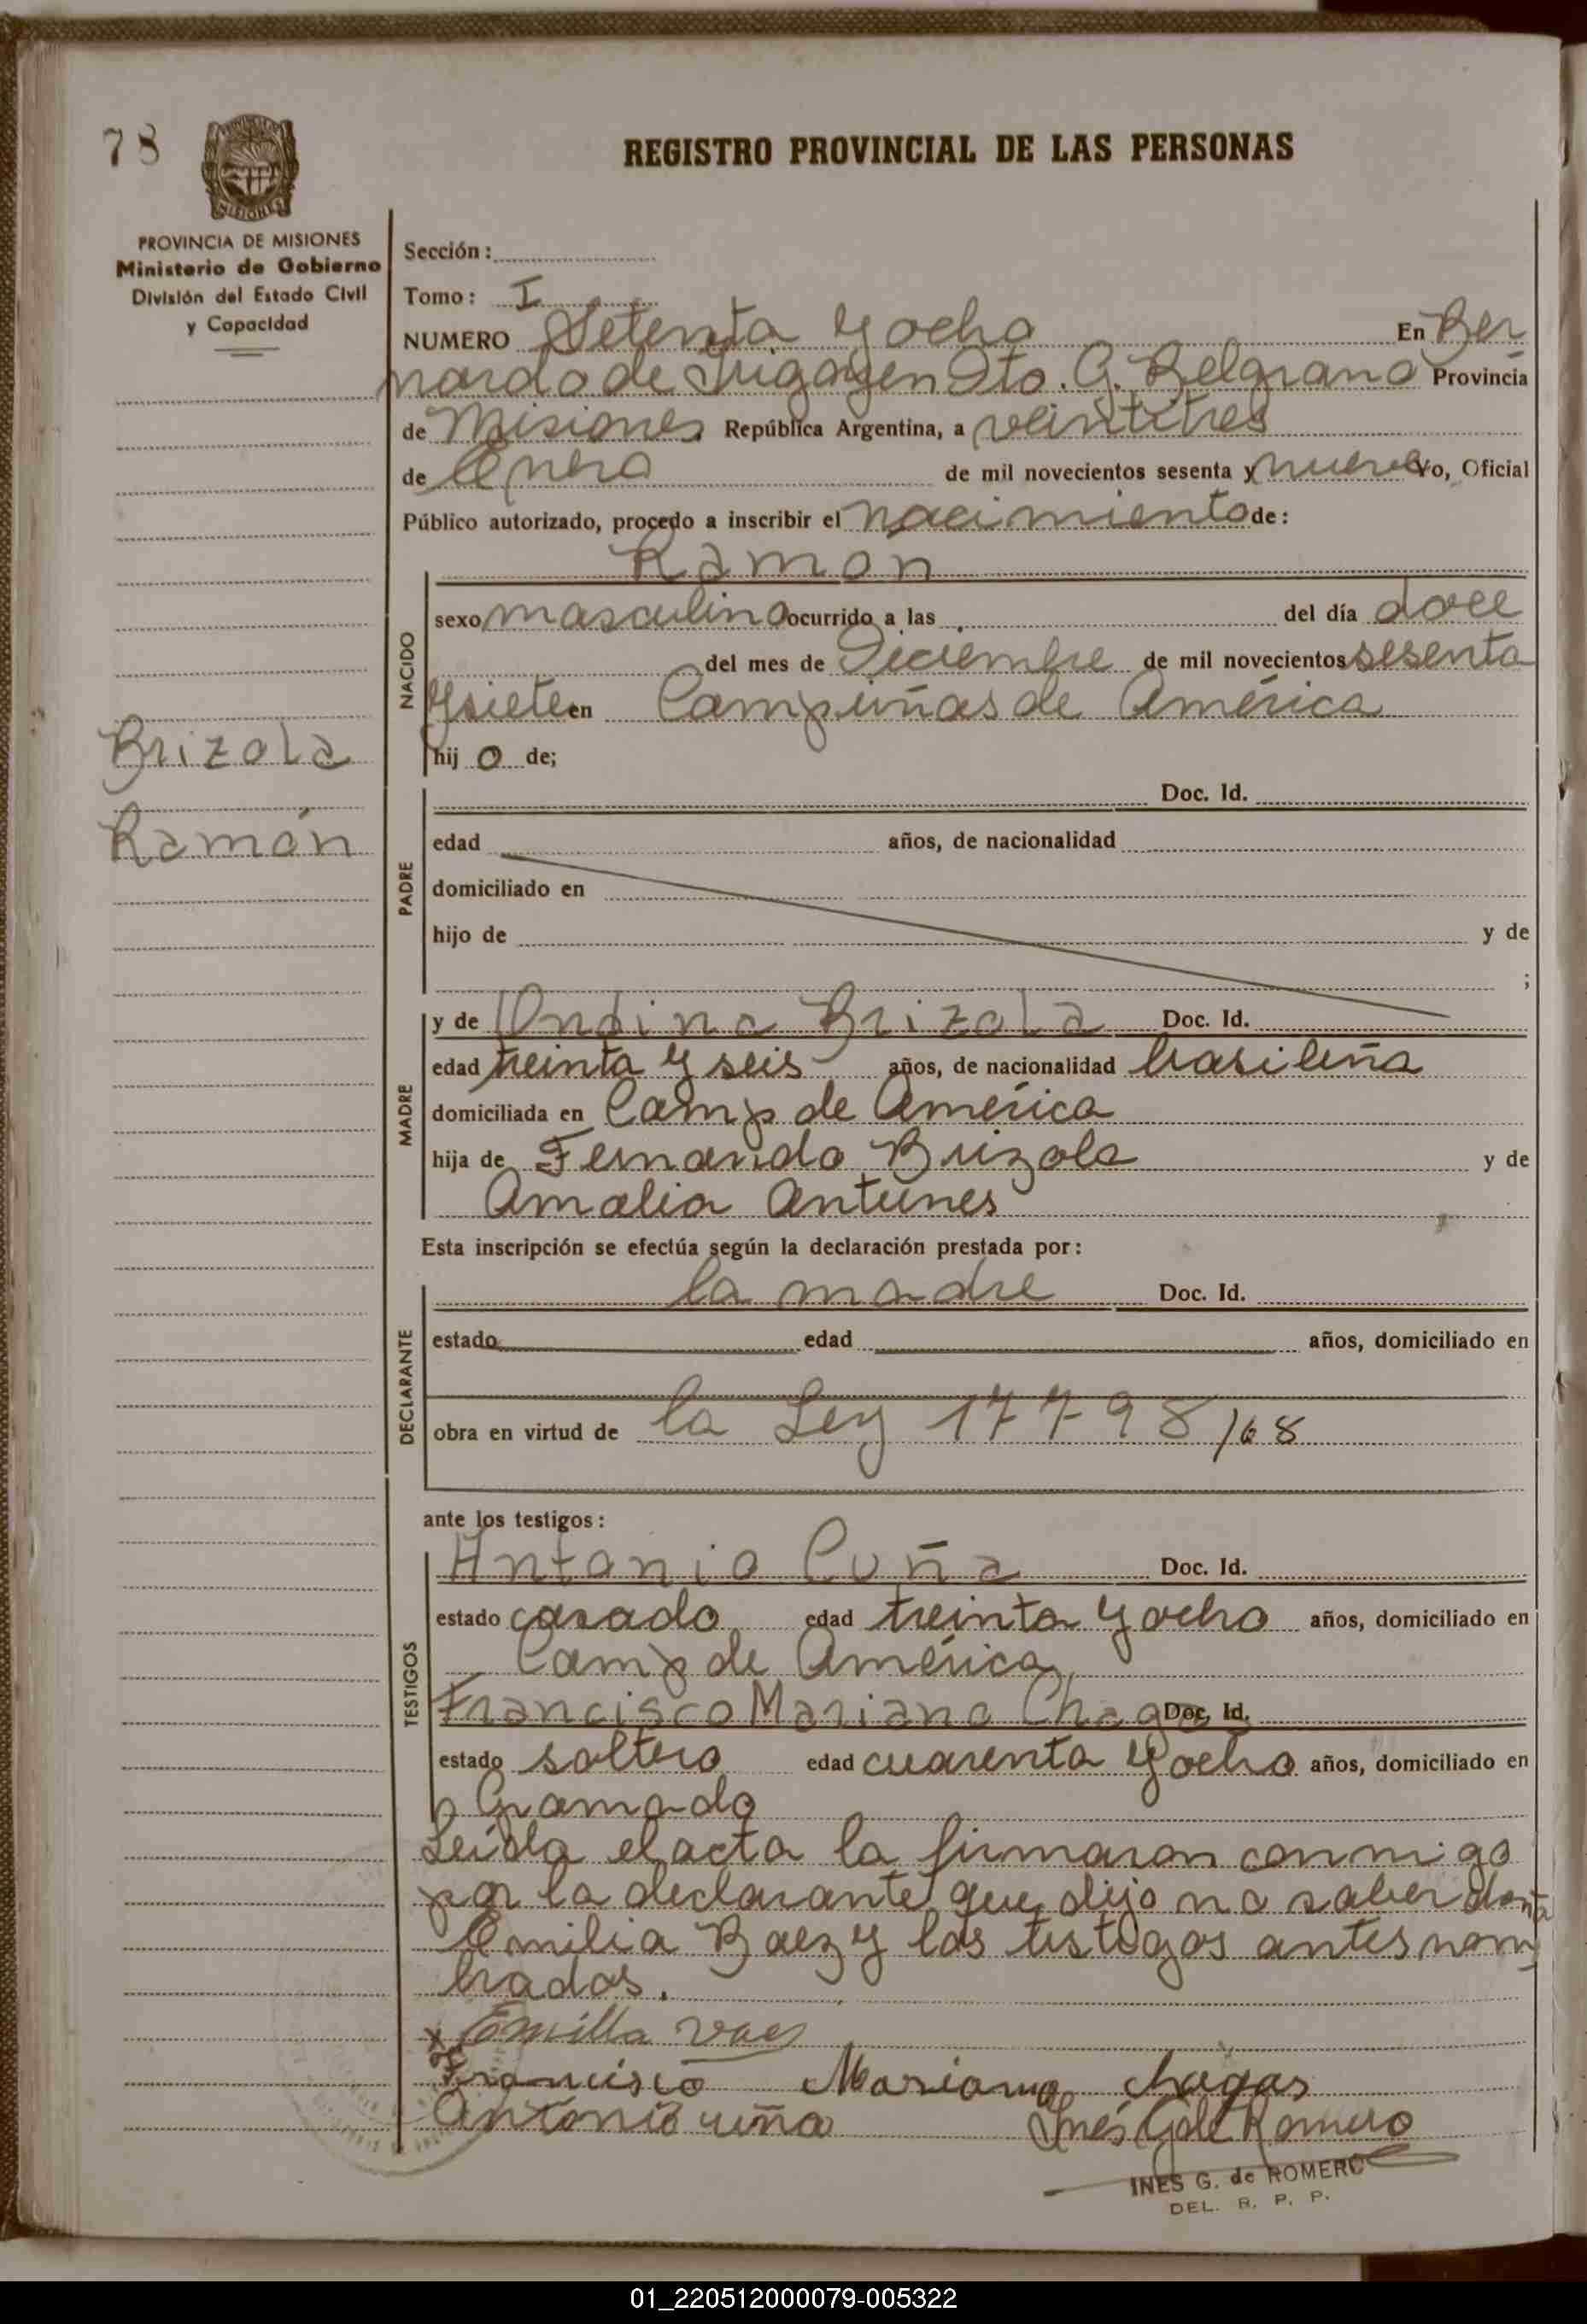 78
MISIONES
PROVINCIA DE MISIONES
Ministerio de Gobierno
División del Estado Civil
y Capacidad
REGISTRO PROVINCIAL DE LAS PERSONAS
Sección:
Tomo: I
NUMERO Setenta y ocho En Ber
nardo de Irigoyen Dto. G. Belgrano Provincia
de Misiones República Argentina, a veintitres
de Enero de mil novecientos sesenta y nueve Yo, Oficial
Público autorizado, procedo a inscribir el nacimiento de:
Ramón
NACIDO
sexo masculino ocurrido a las del día doce
del mes de Diciembre de mil novecientos sesenta
y siete en Campiñas de América
hij o de;
Brizola
Ramón
PADRE
Doc. Id.
edad años, de nacionalidad
domiciliado en
hijo de y de
;
MADRE
y de Ondina Brizola Doc. Id.
edad treinta y seis años, de nacionalidad brasileña
domiciliada en Camp de América
hija de Fernando Brizola y de
Amalia Antunes
Esta inscripción se efectúa según la declaración prestada por:
DECLARANTE
la madre Doc. Id.
estado edad años, domiciliado en
obra en virtud de la Ley 17798/68
ante los testigos:
TESTIGOS
Antonio Cuña Doc. Id.
estado casado edad treinta y ocho años, domiciliado en
Camp de América,
Francisco Mariano Chagas Doc. Id.
estado soltero edad cuarenta y ocho años, domiciliado en
Gramado
Leída el acta la firmaron conmigo
por la declarante que dijo no saber doña
Emilia Baez y los testigos antes nom
brados.
x Emilla vaes
Francisco Mariano chagas
Antonio cuña Inés G de Romero
INES G. de ROMERO
DEL. R. P. P.
01_220512000079-005322